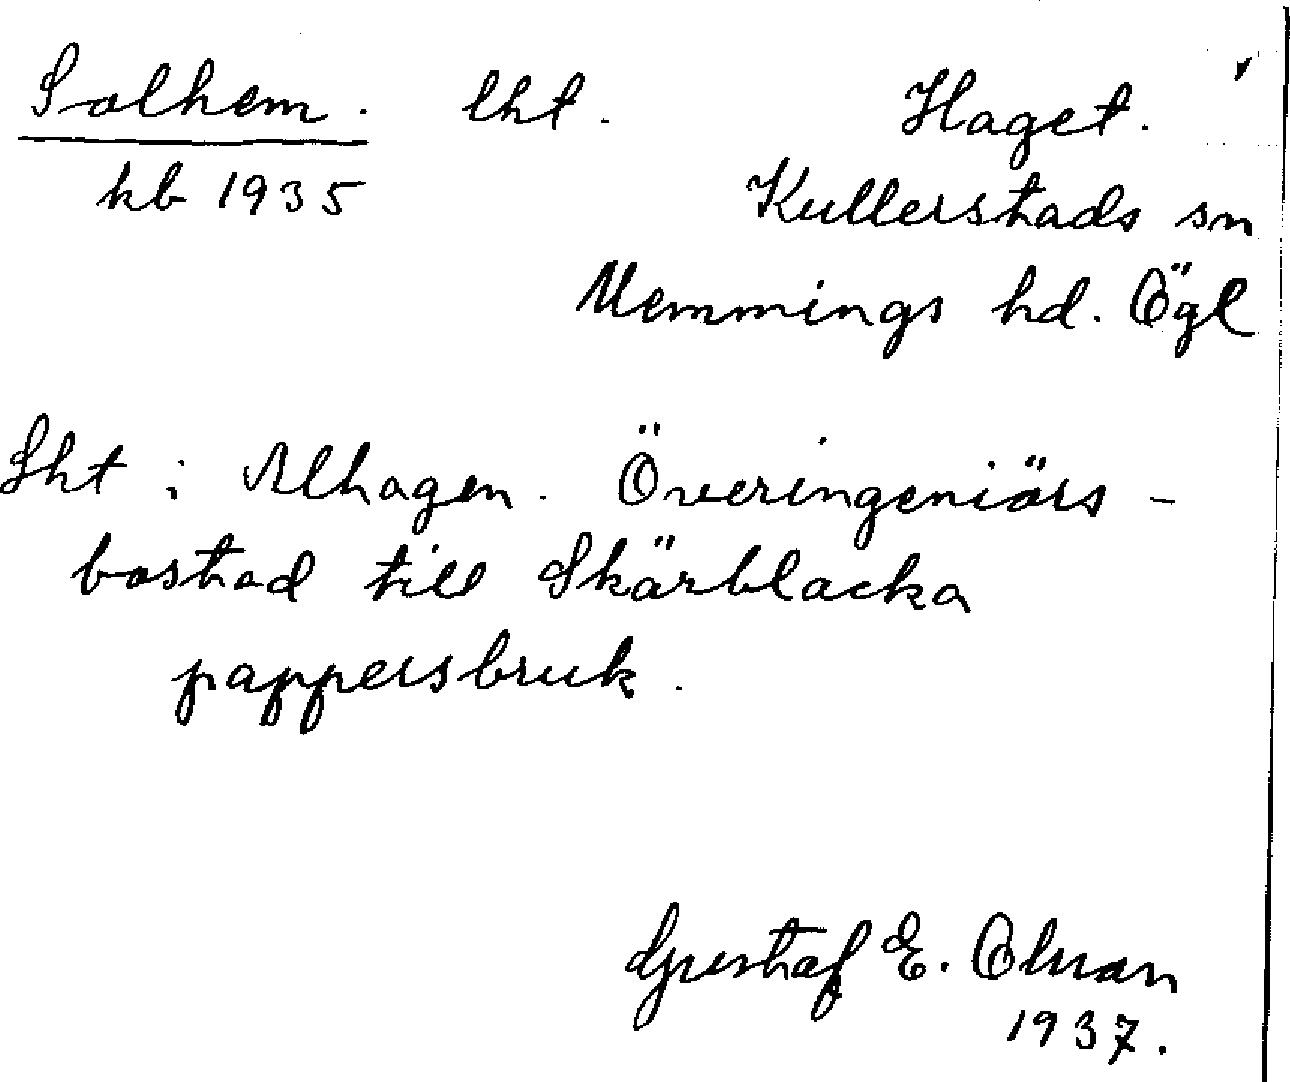 Solhem. lht. Haget.
kb 1935 Kullerstads sn
Memmings hd. Ögl
Lht i Alhagen. Överingeniörs-
bostad till Skärblacka
pappersbruk.
Gustaf E. Olman
1937.